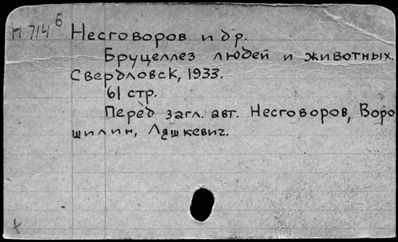 П 714 б
Несговоров и др.
Бруцеллез людей и животных.
Свердловск, 1933.
61 стр.
Перед загл. авт. Несговоров, Воро
шилин, Ляшкевич.